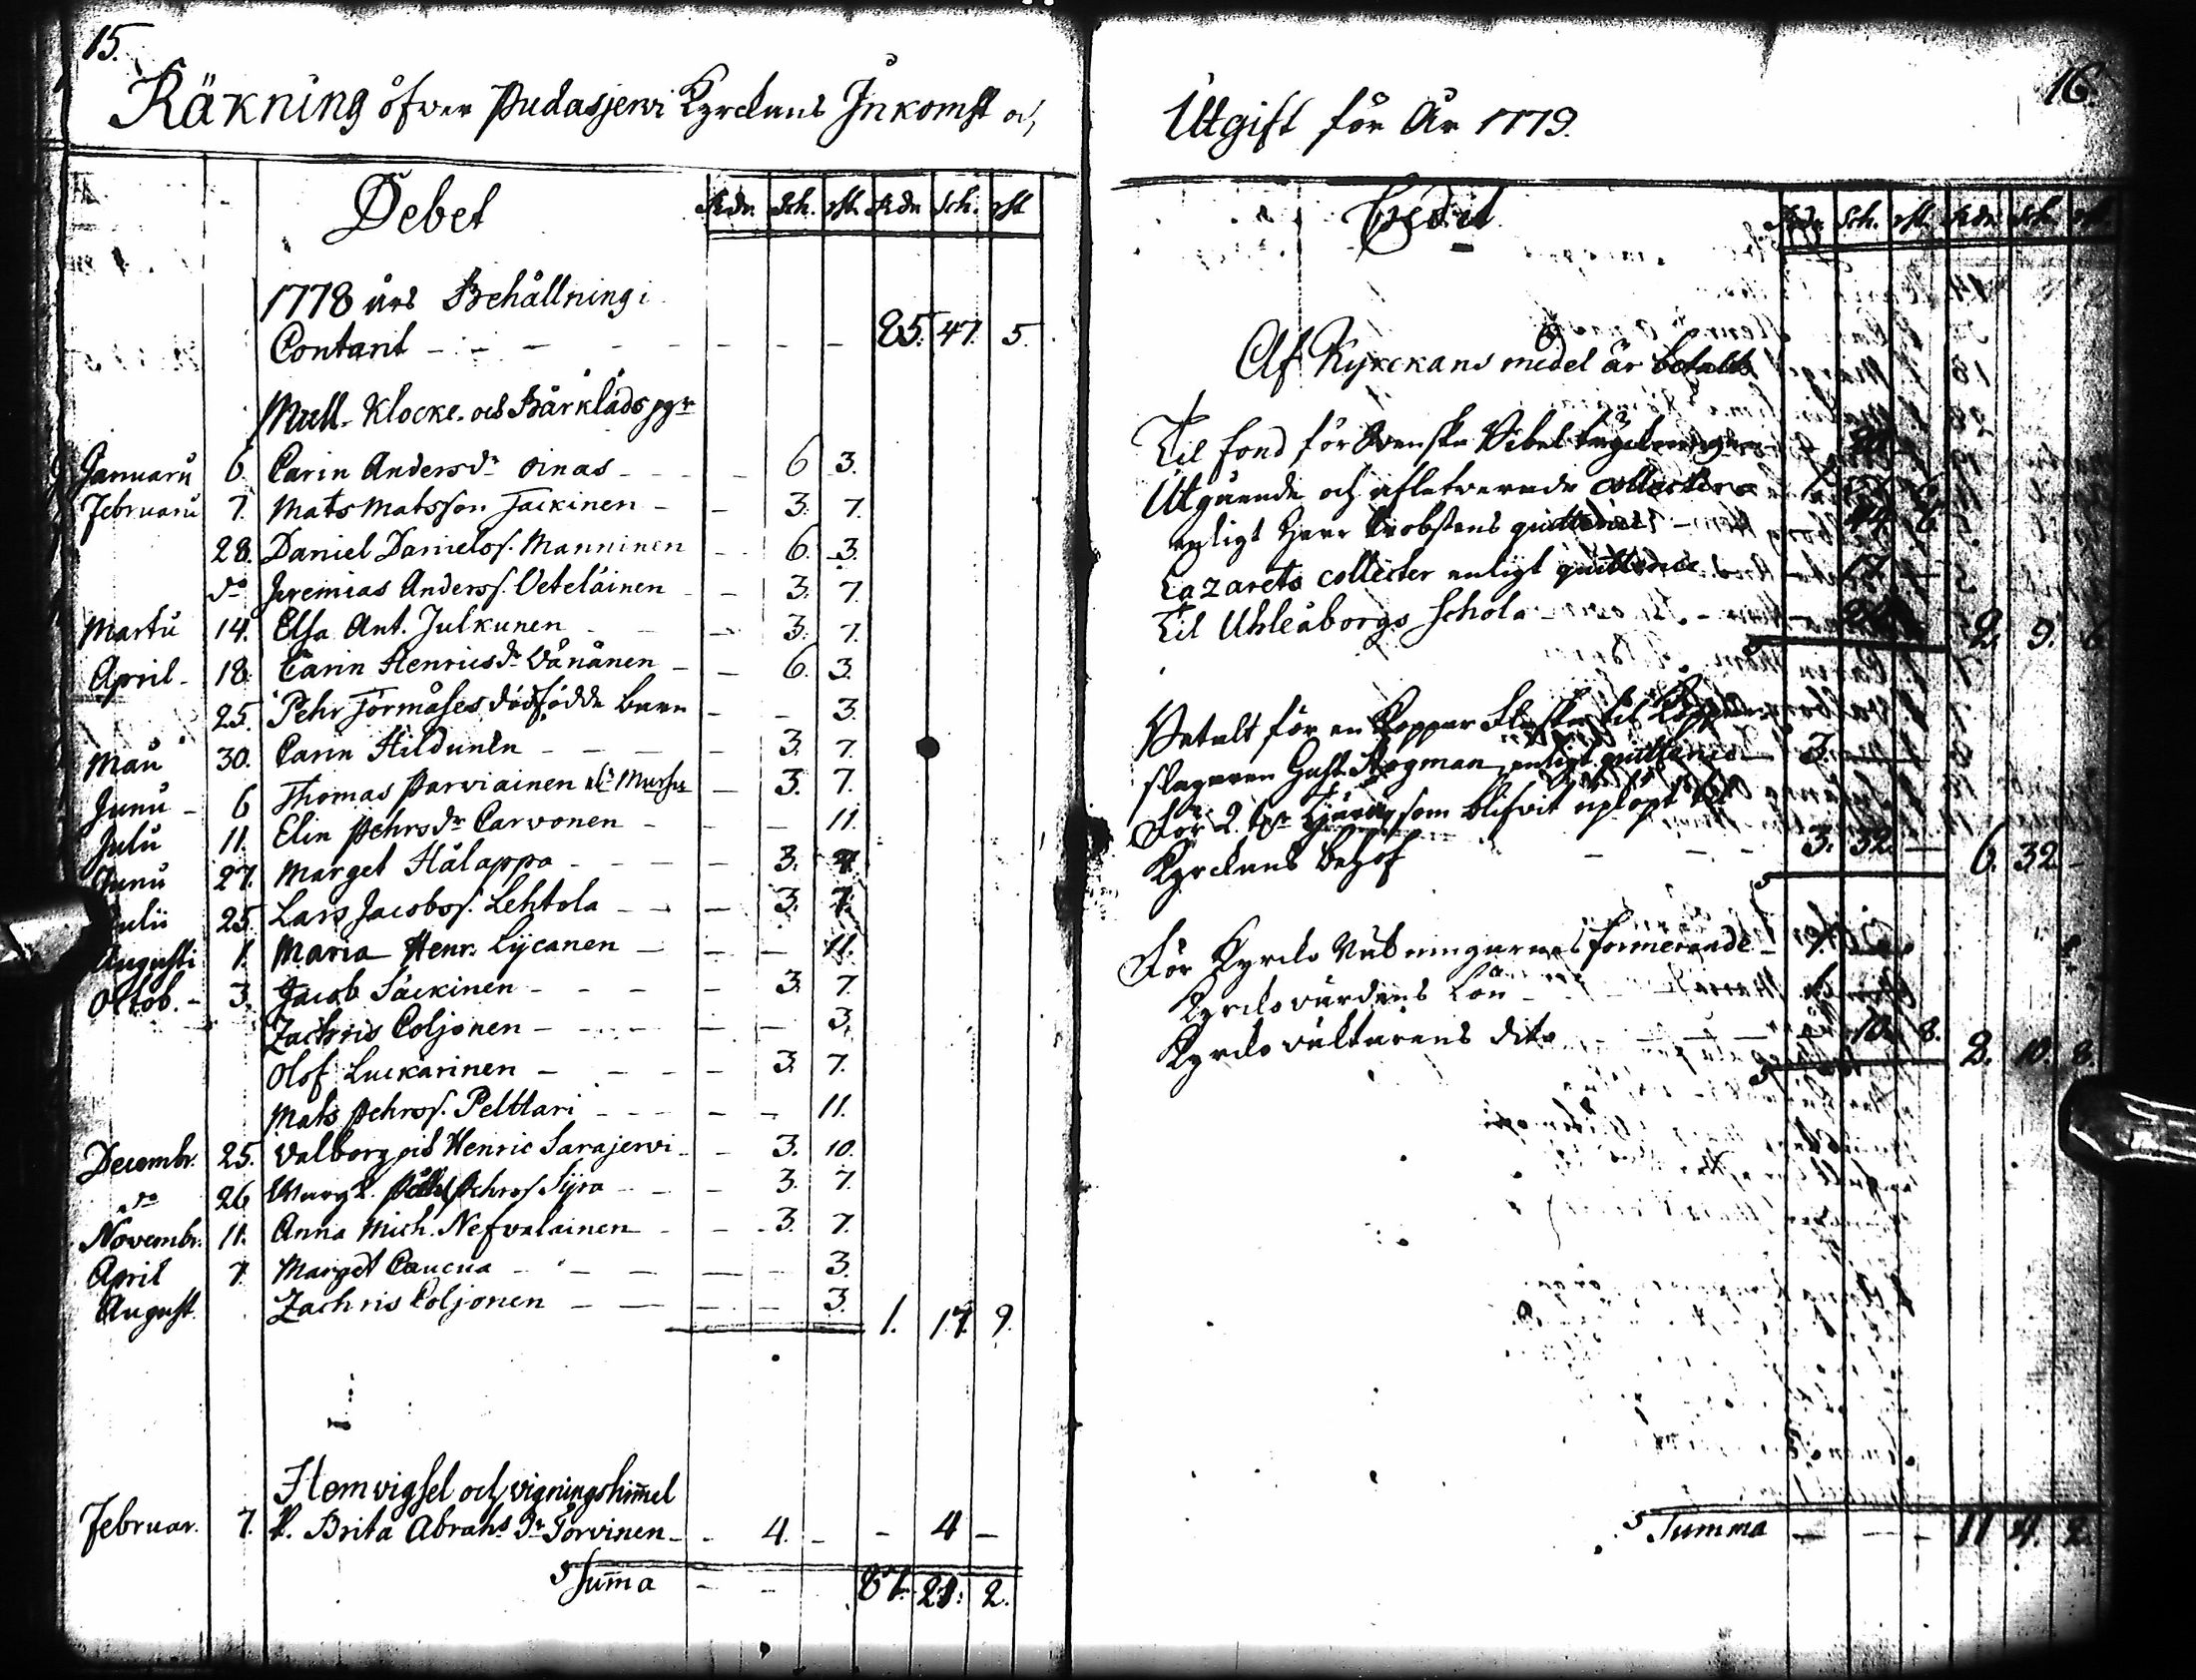 15.
Räkning öfwer Pudasjerwi Kyrckans Inkomst och
Debet
Rdr Sch. rst. Rdr Sch. rst
1778 års Behållning i
Contant - - - - - - - 85. 47. 5.
Mull- Klocke- och Bårkläds pgr
Januarii 6. Carin Andersdr Oinas - - 6. 3.
Februarii 7. Mats Matsson Jackinen - - 3. 7.
28. Daniel Daniels. Manninen - 6. 3.
do Jeremias Anderss. Veteläinen - - 3. 7.
Martii 14. Elsa Ant. Julkunen - - 3. 7.
April - 18. Carin Henricsdr Vänänen - - 6. 3.
25. Pehr Törmäses dödfödde barn - - 3.
Maii 30. Carin Hildunen - - - 3. 7.
Junii - 6 Thomas Parviainen - 3. 7.
Julii 11. Elin Pehrsdr Carvonen - - - 11.
Junii 27. Marget Hälappa - - - 3. 7.
Julii 25. Lars Jacobss. Lehtola - - - 3. 7.
Augusti 1. Maria Henr. Lycanen - - - 11.
Octob. - 3. Jacob Säckinen - - - - 3. 7.
Zachris Coljonen - - - - 3.
Olof Luckarinen - - - - 3. 7.
Mats Pehrss. Pelttari - - - - 11.
Decembr. 25. Valborg och Henric Sarajerwi - - 3. 10.
do 26 Pehrss. Syra - - - 3. 7.
Novembr. 11. Anna Mich. Nefvalainen - - 3. 7.
April 7. Marget Caucua - - - - 3.
August. Zachris Coljonen - - - - 3. 1. 17. 9.
Hemvigsel och vigningshimmel
Februar. 7. P. Brita Abrahs dr Törvinen - - 4. - - 4 -
Summa - - 87. 21. 2.
16.
Utgift för År 1779.
Credit
Rdr Sch. rst. Rdr Sch. rst.
Af Kyrckans medel är betalt
Til fond för Svenska Bibel
Utgående och aflefwererade collecter
enligt Herr Probstens quittence - 44. 6.
Lazarets collecter enligt quittence - 17. -
Til Uhleåborgs Schola - - - 2. 9. 6
Betalt för en Koppar Flaska til Koppar
slagaren Gust. Stogman enligt quittence - 3. -
För 2. som blifvit uplöpt til
Kyrckans behof - - - 3. 32. - 6. 32 -
För Kyrcko Räkningarnes formerande -
Kyrckovärdens Lön -
Kyrcko väktarens dito - - 10. 8. 2. 10. 8.
Summa - - - 11 4. 2.